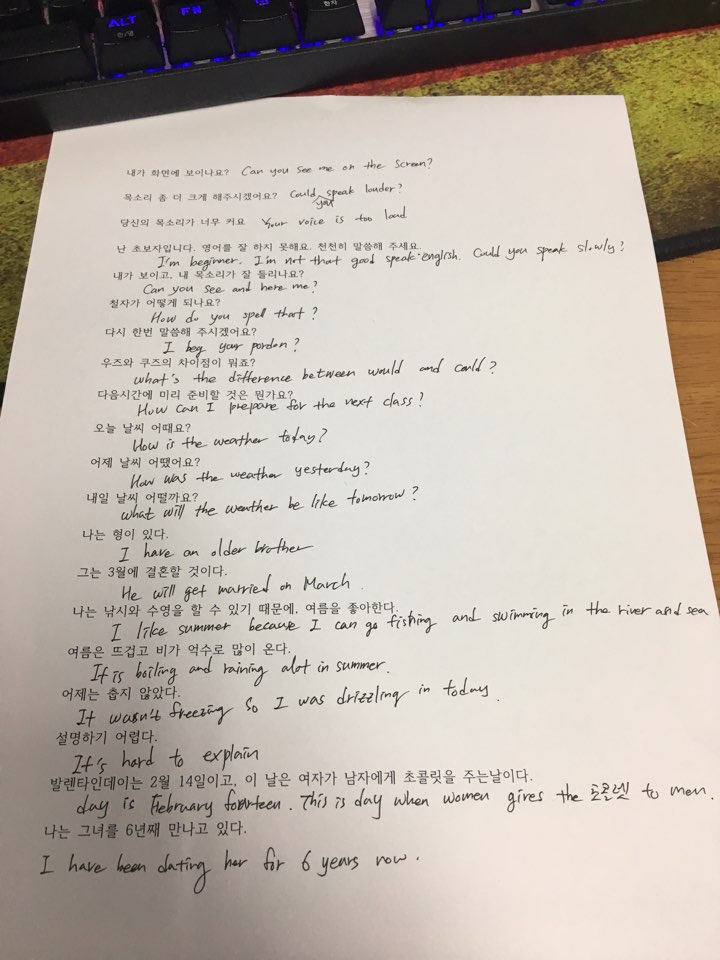 ALT
한/영
FN
한자
내가 화면에 보이나요? Can you see me on the screen?
목소리 좀 더 크게 해주시겠어요? Could you speak louder?
당신의 목소리가 너무 커요 Your voice is too loud
난 초보자입니다. 영어를 잘 하지 못해요. 천천히 말씀해 주세요.
I'm beginner. I'm not that good speak english. Could you speak slowly?
내가 보이고, 내 목소리가 잘 들리나요?
Can you see and here me?
철자가 어떻게 되나요?
How do you spell that?
다시 한번 말씀해 주시겠어요?
I beg your pordon?
우즈와 쿠즈의 차이점이 뭐죠?
what's the difference between would and could?
다음시간에 미리 준비할 것은 뭔가요?
How can I prepare for the next class?
오늘 날씨 어때요?
How is the weather today?
어제 날씨 어땠어요?
How was the weather yesterday?
내일 날씨 어떨까요?
what will the weather be like tomorrow?
나는 형이 있다.
I have an older brother
그는 3월에 결혼할 것이다.
He will get married on March.
나는 낚시와 수영을 할 수 있기 때문에, 여름을 좋아한다.
I like summer because I can go fishing and swimming in the river and sea
여름은 뜨겁고 비가 억수로 많이 온다.
It is boiling and raining alot in summer.
어제는 춥지 않았다.
It wasn't freezing so I was drizzling in today.
설명하기 어렵다.
It's hard to explain
발렌타인데이는 2월 14일이고, 이 날은 여자가 남자에게 초콜릿을 주는날이다.
day is February fourteen. This is day when women gives the 초콜렛 to men.
나는 그녀를 6년째 만나고 있다.
I have been dating her for 6 years now.